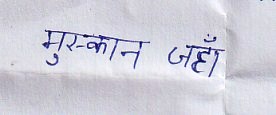 मुस्कान जहाँ